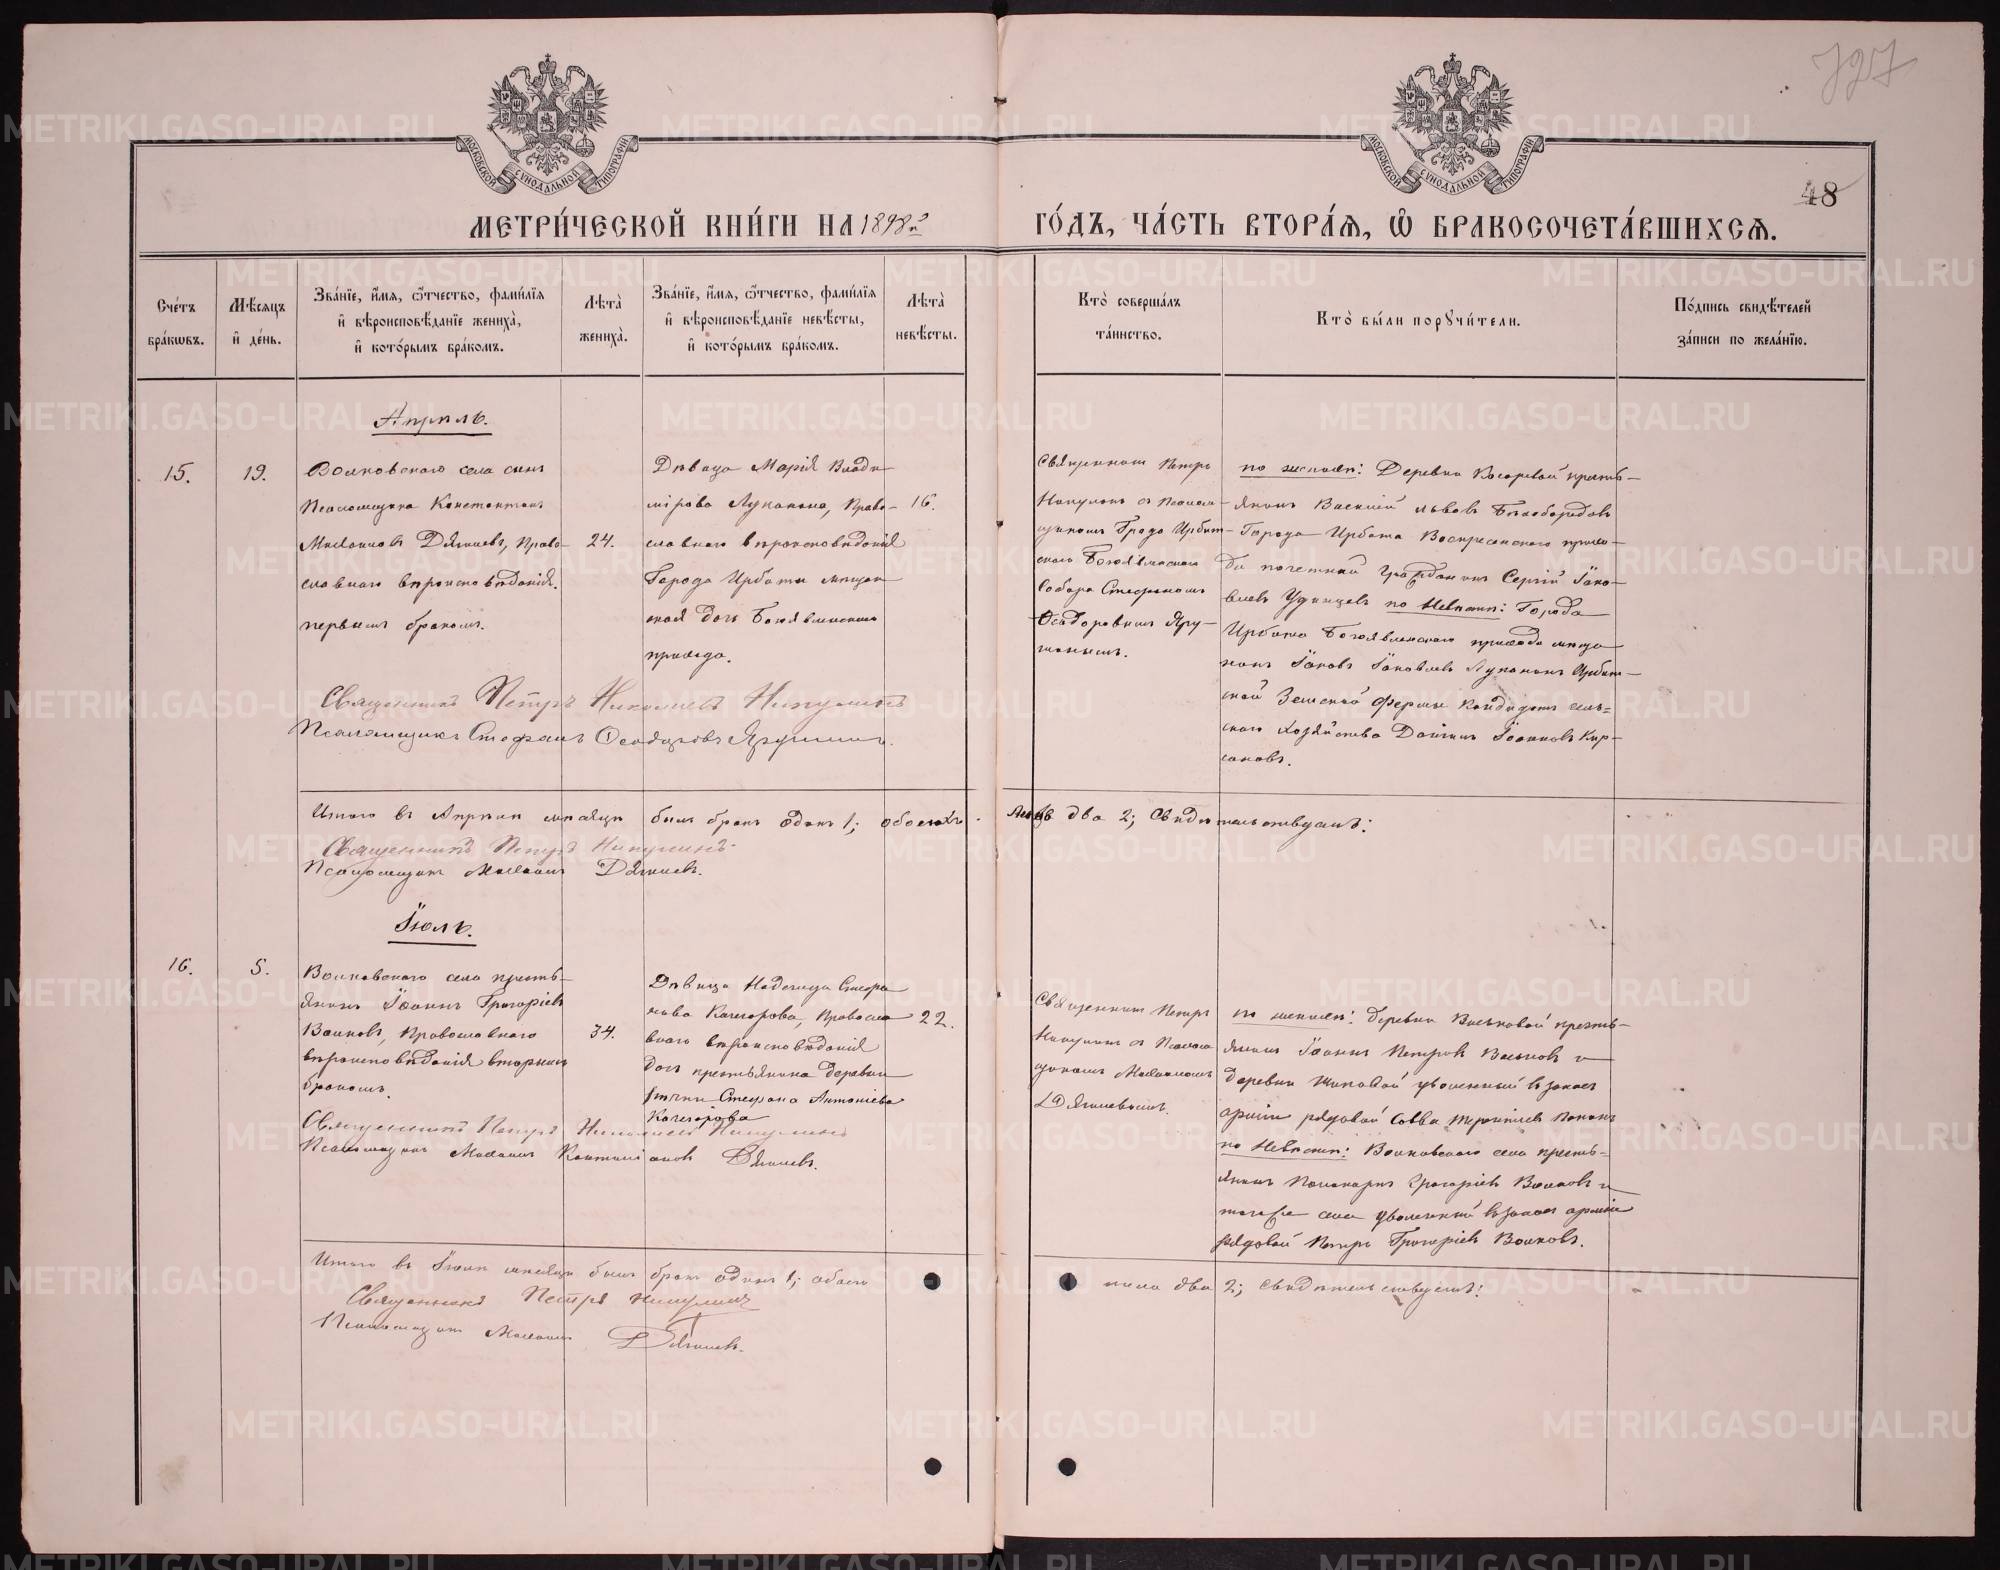 727
48
МОСКОВСКОЙ СѴНОДАЛЬНОЙ ТИПОГРАФІИ
МОСКОВСКОЙ СѴНОДАЛЬНОЙ ТИПОГРАФІИ
МЕТРИ́ЧЕСКОЙ КНИ́ГИ НА 1898й
ГО́ДЪ, ЧА́СТЬ ВТОРА́Я, Ѡ БРАКОСОЧЕТА́ВШИХСЯ.
Сче́тъ бра́кѡвъ.
Мѣ́сяцъ и҆ де́нь.
Зва́нїе, и҆́мя, ѻ҆́тчество, фами́лїя
и҆ вѣроисповѣ́данїе жениха̀,
и҆ кото́рымъ бра́комъ.
Лѣта̀ жениха̀.
Зва́нїе, и҆́мя, ѻ҆́тчество, фами́лїя
и҆ вѣроисповѣ́данїе невѣ́сты,
и҆ кото́рымъ бра́комъ.
Лѣта̀ невѣ́сты.
Кто̀ соверша́лъ та́инство.
Кто̀ бы́ли порꙋчи́тели.
По́дпись свидѣ́телей
за́писи по жела́нїю.
Апрѣль.
15.
19.
Волковскаго села сынъ
Псаломщика Константинъ
Михаиловъ Дягилевъ, Право-
славнаго вѣроисповѣданія.
первымъ бракомъ.
24.
Дѣвица Марія Влади
мірова Лупанина, Право-
славнаго вѣроисповѣданія
Города Ирбити мѣщан
ская дочь Богоявленскаго
прихода.
16.
Священникъ Петръ
Никулинъ съ Псалом-
щикомъ Града Ирбит-
скаго Богоявленскаго
Собора Стефаномъ
Ѳеодоровымъ Яру-
шинымъ.
по женихѣ: Деревни Косаревой кресть-
янинъ Василій Львовъ Бѣлобородовъ
Города Ирбита Воскресенскаго прихо-
да почетный гражданинъ Сергій Іако-
влевъ Удинцевъ по Невѣстѣ: Города
Ирбита Богоявленскаго прихода мѣща
нинъ Іаковъ Іаковлевъ Лупанинъ Ирбит-
ской Земской фермы Кандидатъ сель-
скаго хозяйства Іоанновъ Кир-
сановъ.
Священникъ Петръ Николаевъ Никулинъ
Псаломщикъ Стефанъ Ѳеодоровъ Ярушинъ.
Итого въ Апрѣлѣ мѣсяцѣ былъ бракъ одинъ 1; обоего
два 2; Свидѣтельствуемъ:
Священникъ Петръ Никулинъ
Псаломщикъ Михаилъ Дягилевъ.
Іюль.
16.
5.
Волковскаго села кресть-
янинъ Іоаннъ Григоріевъ
Волковъ, Православнаго
вѣроисповѣданія вторымъ
бракомъ.
34.
Дѣвица Надежда Стефа
нова Качегорова, Правосла
внаго вѣроисповѣданія
дочь крестьянина деревни
Стефана Антоніева
Качегорова
22.
Священникъ Петръ
Никулинъ съ Псалом
щикомъ Михаиломъ
Дягилевымъ.
по женихѣ: деревни Васьковой кресть-
янинъ Іоаннъ Петровъ Васьковъ и
деревни уволенный въ запасъ
арміи рядовой Савва Терентіевъ
по Невѣстѣ: Волковскаго села кресть-
янинъ Григоріевъ Волковъ и
того же села уволенный въ запасъ арміи
рядовой Петръ Григоріевъ Волковъ.
Священникъ Петръ Николаевъ Никулинъ
Псаломщикъ Михаилъ Дягилевъ.
Итого въ Іюлѣ мѣсяцѣ былъ бракъ одинъ 1; обоего
пола два 2; Свидѣтельствуемъ:
Священникъ Петръ Никулинъ
Псаломщикъ Михаилъ Дягилевъ.
METRIKI.GASO-URAL.RU